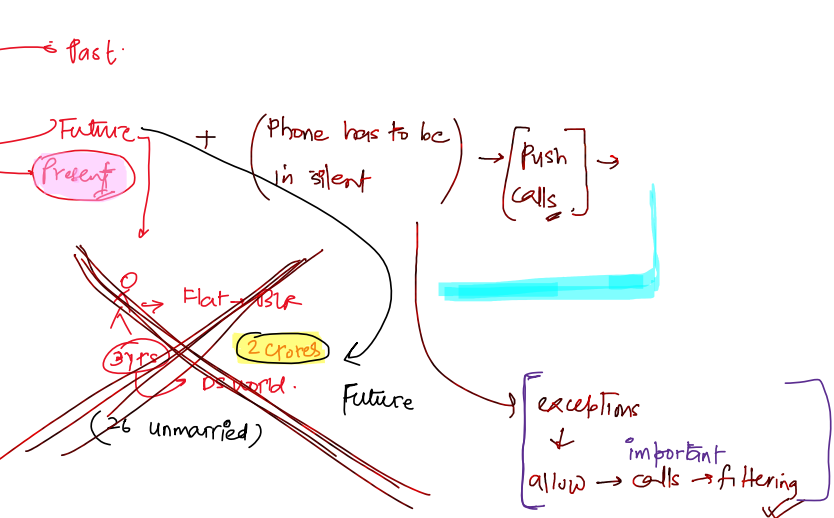 Past.
Future
Present
+ (Phone has to be in silent) → [Push calls.] →
Flat → BLR
3 yrs
2 crores
DS world.
(26 unmarried)
Future
exceptions
important
allow → calls → filtering